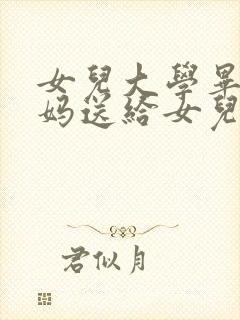 女兒大學畢
妈送給女兒
君似月